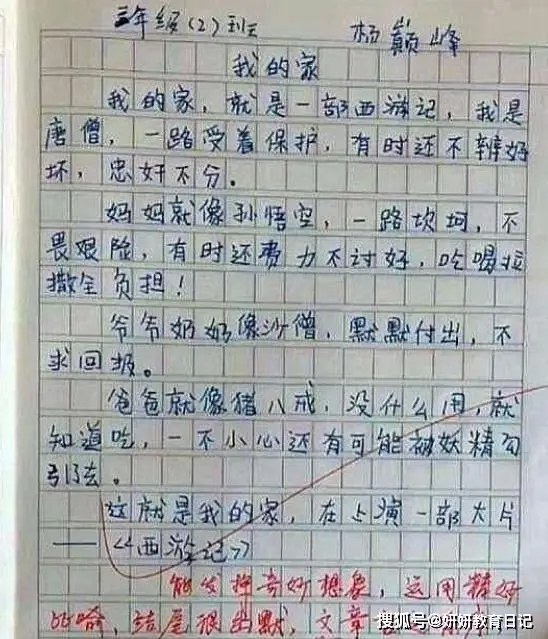 三年级(2)班 杨巅峰
我的家
我的家,就是一部西游记,我是
唐僧,一路受着保护,有时还不辨好
坏,忠奸不分。
妈妈就像孙悟空,一路坎坷,不
畏艰险,有时还费力不讨好,吃喝拉
撒全负担!
爷爷奶奶像沙僧,默默付出,不
求回报。
爸爸就像猪八戒,没什么用,就
知道吃,一不小心还有可能被妖精勾
引去。
这就是我的家,在上演一部大片
——《西游记》
能发挥奇妙想象,运用精妙
的喻,结尾很幽默,文章
搜狐号@妍妍教育日记